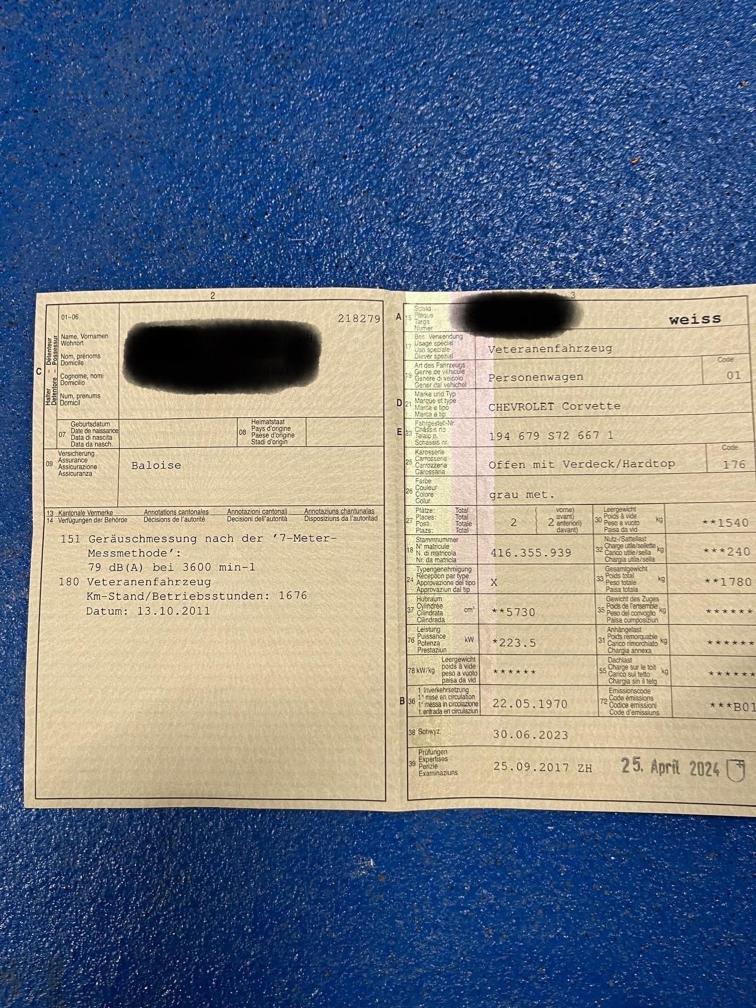 2
01-06
218279
C
Halter - Détenteur
Detentore - Possessur
Name, Vornamen
Wohnort
Nom, prénoms
Domicile
Cognome, nomi
Domicilio
Num, prenums
Domicil
07 Geburtsdatum
Date de naissance
Data di nascita
Data da nasch.
08 Heimatstaat
Pays d'origine
Paese d'origine
Stadi d'origin
09 Versicherung
Assurance
Assicurazione
Assicuranza
Baloise
13 Kantonale Vermerke Annotations cantonales Annotazioni cantonali Annotaziuns chantunalas
14 Verfügungen der Behörde Décisions de l'autorité Decisioni dell'autorità Disposiziuns da l'autoritad
151 Geräuschmessung nach der '7-Meter-
Messmethode':
79 dB(A) bei 3600 min-1
180 Veteranenfahrzeug
Km-Stand/Betriebsstunden: 1676
Datum: 13.10.2011
3
A 15 Schild
Plaque
Targa
Numer
weiss
17 Bes. Verwendung
Usage spécial
Uso speciale
Diever spezial
Veteranenfahrzeug
19 Art des Fahrzeugs
Genre de véhicule
Genere di veicolo
Gener dal vehichel
Personenwagen
Code
01
D 21 Marke und Typ
Marque et type
Marca e tipo
Marca e tip
CHEVROLET Corvette
E 23 Fahrgestell-Nr.
Châssis no
Telaio n.
Schassis nr.
194 679 S72 667 1
25 Karosserie
Carrosserie
Carrozzeria
Carossaria
Offen mit Verdeck/Hardtop
Code
176
26 Farbe
Couleur
Colore
Colur
grau met.
27 Plätze: Total
Places: Total
Posti: Totale
Plazs: Total
2
2
vorne)
avant)
anteriori)
davant)
30 Leergewicht
Poids à vide
Peso a vuoto
Paisa da vid
kg
**1540
18 Stammnummer
N° matricule
N. di matricola
Nr. da matricla
416.355.939
32 Nutz-/Sattellast
Charge utile/sellette
Carico utile/sella
Chargia utila/sella
kg
***240
24 Typengenehmigung
Réception par type
Approvazione del tipo
Approvaziun dal tip
X
33 Gesamtgewicht
Poids total
Peso totale
Paisa totala
kg
**1780
37 Hubraum
Cylindrée
Cilindrata
Cilindrada
cm³
**5730
35 Gewicht des Zuges
Poids de l'ensemble
Peso del convoglio
Paisa cumposiziun
kg
******
76 Leistung
Puissance
Potenza
Prestaziun
kW
*223.5
31 Anhängelast
Poids remorquable
Carico rimorchiato
Chargia annexa
kg
******
78 kW/kg
Leergewicht
poids à vide
peso a vuoto
paisa da vid
******
55 Dachlast
Charge sur le toit
Carico sul tetto
Chargia sin il tetg
kg
******
B 36 1. Inverkehrsetzung
1re mise en circulation
1a messa in circolazione
1. entrada en circulaziun
22.05.1970
72 Emissionscode
Code émissions
Codice emissioni
Code d'emissiuns
***B01
38 Schwyz
30.06.2023
39 Prüfungen
Expertises
Perizie
Examinaziuns
25.09.2017 ZH
25. April 2024